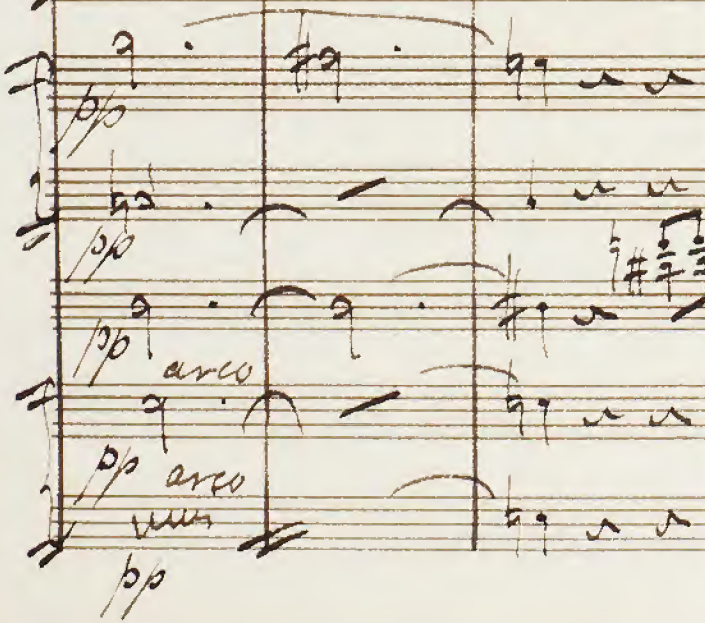 pp
pp
pp
arco
pp arco
pp